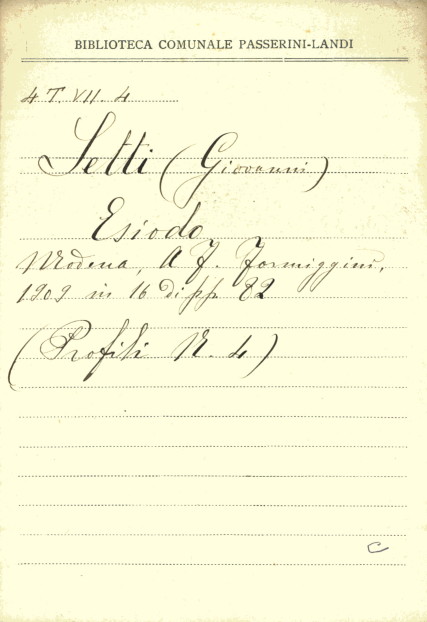 BIBLIOTECA COMUNALE PASSERINI-LANDI
4 T. VII. 4
Setti (Giovanni)
Esiodo
Modena, A F. Formiggini,
1909 in 16 di pp. 82
(Profili N. 4)
C